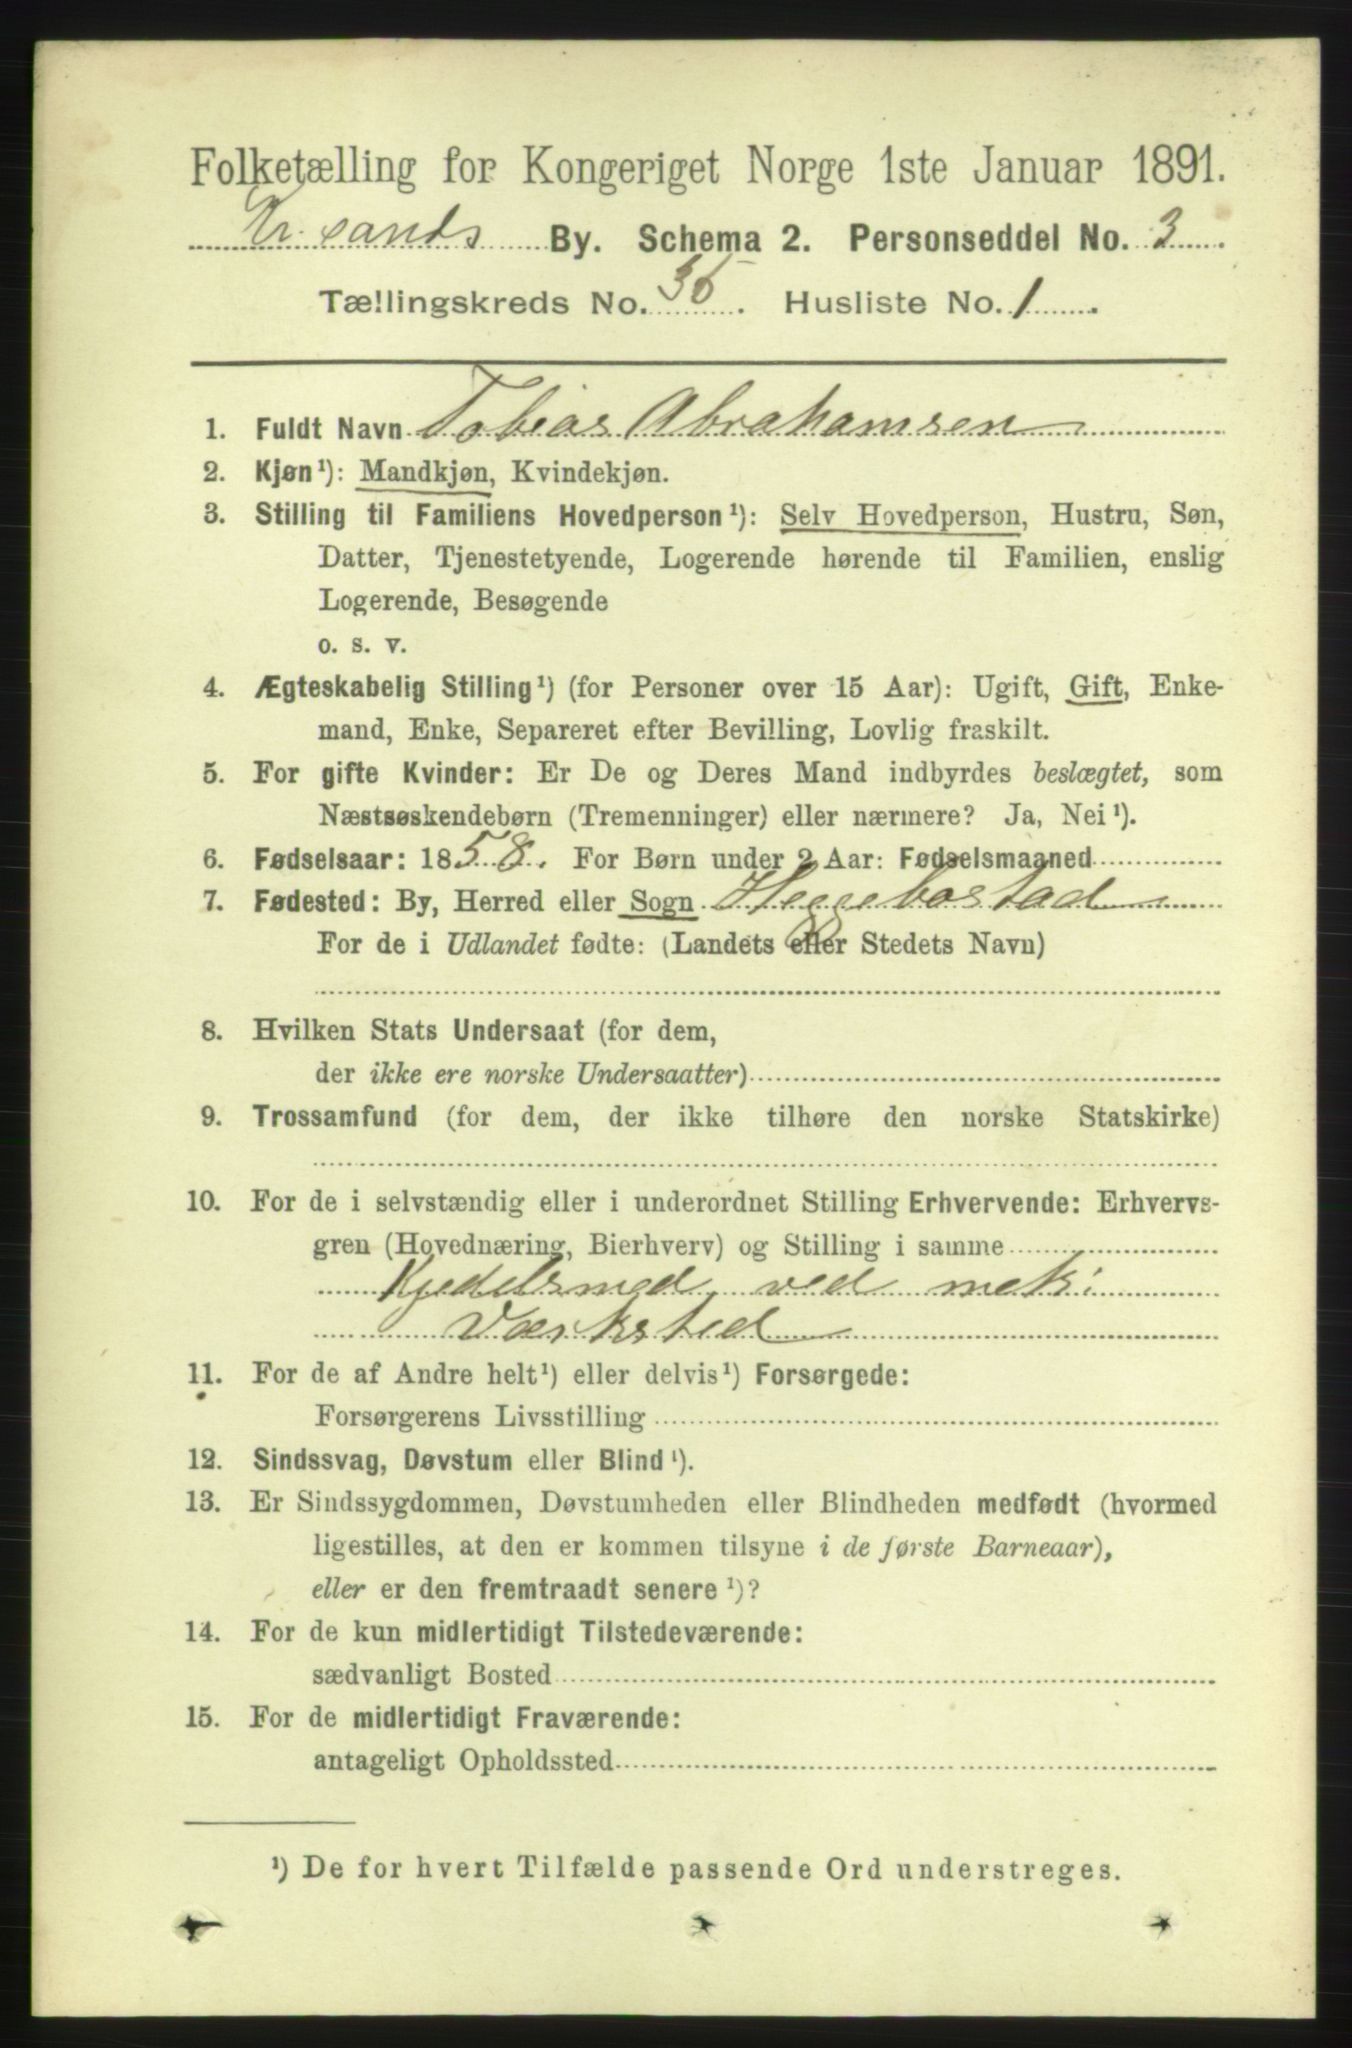 Folketælling for Kongeriget Norge 1ste Januar 1891.
Kr.sands By. Schema 2. Personseddel No. 3
Tællingskreds No. 35. Husliste No. 1.
1. Fuldt Navn Tobias Abrahamsen
2. Kjøn¹): Mandkjøn, Kvindekjøn.
3. Stilling til Familiens Hovedperson¹): Selv Hovedperson, Hustru, Søn,
Datter, Tjenestetyende, Logerende hørende til Familien, enslig
Logerende, Besøgende
o. s. v.
4. Ægteskabelig Stilling¹) (for Personer over 15 Aar): Ugift, Gift, Enke-
mand, Enke, Separeret efter Bevilling, Lovlig fraskilt.
5. For gifte Kvinder: Er De og Deres Mand indbyrdes beslægtet, som
Næstsøskendebørn (Tremenninger) eller nærmere? Ja, Nei¹).
6. Fødselsaar: 1858. For Børn under 2 Aar: Fødselsmaaned
7. Fødested: By, Herred eller Sogn Heggebostad
For de i Udlandet fødte: (Landets eller Stedets Navn)
8. Hvilken Stats Undersaat (for dem,
der ikke ere norske Undersaatter)
9. Trossamfund (for dem, der ikke tilhøre den norske Statskirke)
10. For de i selvstændig eller i underordnet Stilling Erhvervende: Erhvervs-
gren (Hovednæring, Bierhverv) og Stilling i samme
Kjedelsmed ved mek:
Værksted
11. For de af Andre helt¹) eller delvis¹) Forsørgede:
Forsørgerens Livsstilling
12. Sindssvag, Døvstum eller Blind¹).
13. Er Sindssygdommen, Døvstumheden eller Blindheden medfødt (hvormed
ligestilles, at den er kommen tilsyne i de første Barneaar),
eller er den fremtraadt senere¹)?
14. For de kun midlertidigt Tilstedeværende:
sædvanligt Bosted
15. For de midlertidigt Fraværende:
antageligt Opholdssted
¹) De for hvert Tilfælde passende Ord understreges.